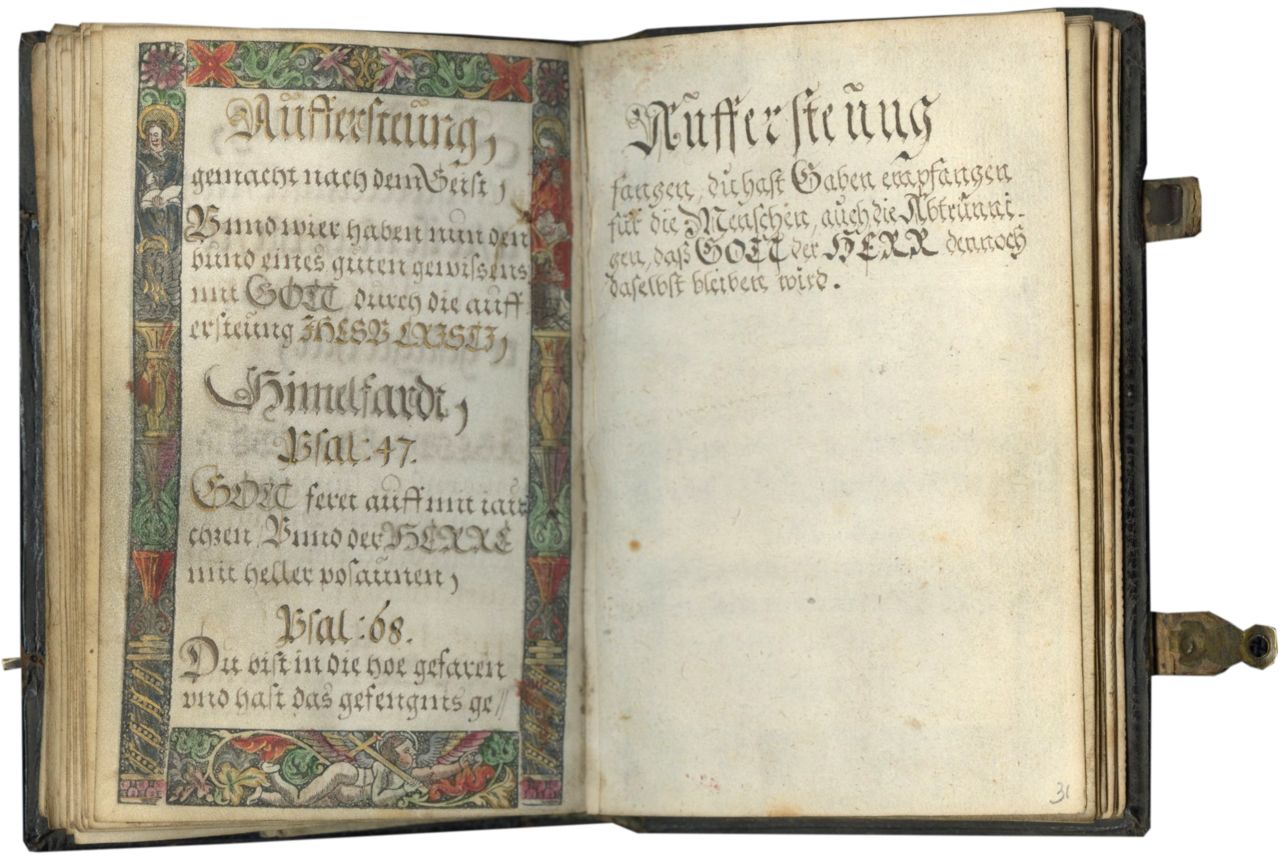 Auffersteung,
gemacht nach dem Geist,
Vnnd wier haben nun den
bund eines guten gewissens
mit GOTT durch die auff
ersteung JHESV CRISTI,
Himelfardt,
Psal: 47.
GOTT feret auff mit iau
chzen Vnnd der HERRE
mit heller posaunen,
Psal: 68.
Du bist in die hoe gefaren
vnd hast das gefengnis ge//
Auffersteung
fangen, du hast Gaben empfangen
für die Menschen, auch die Abtrünni-
gen, daß GOTT der HERR dennoch
daselbst bleiben wird.
31